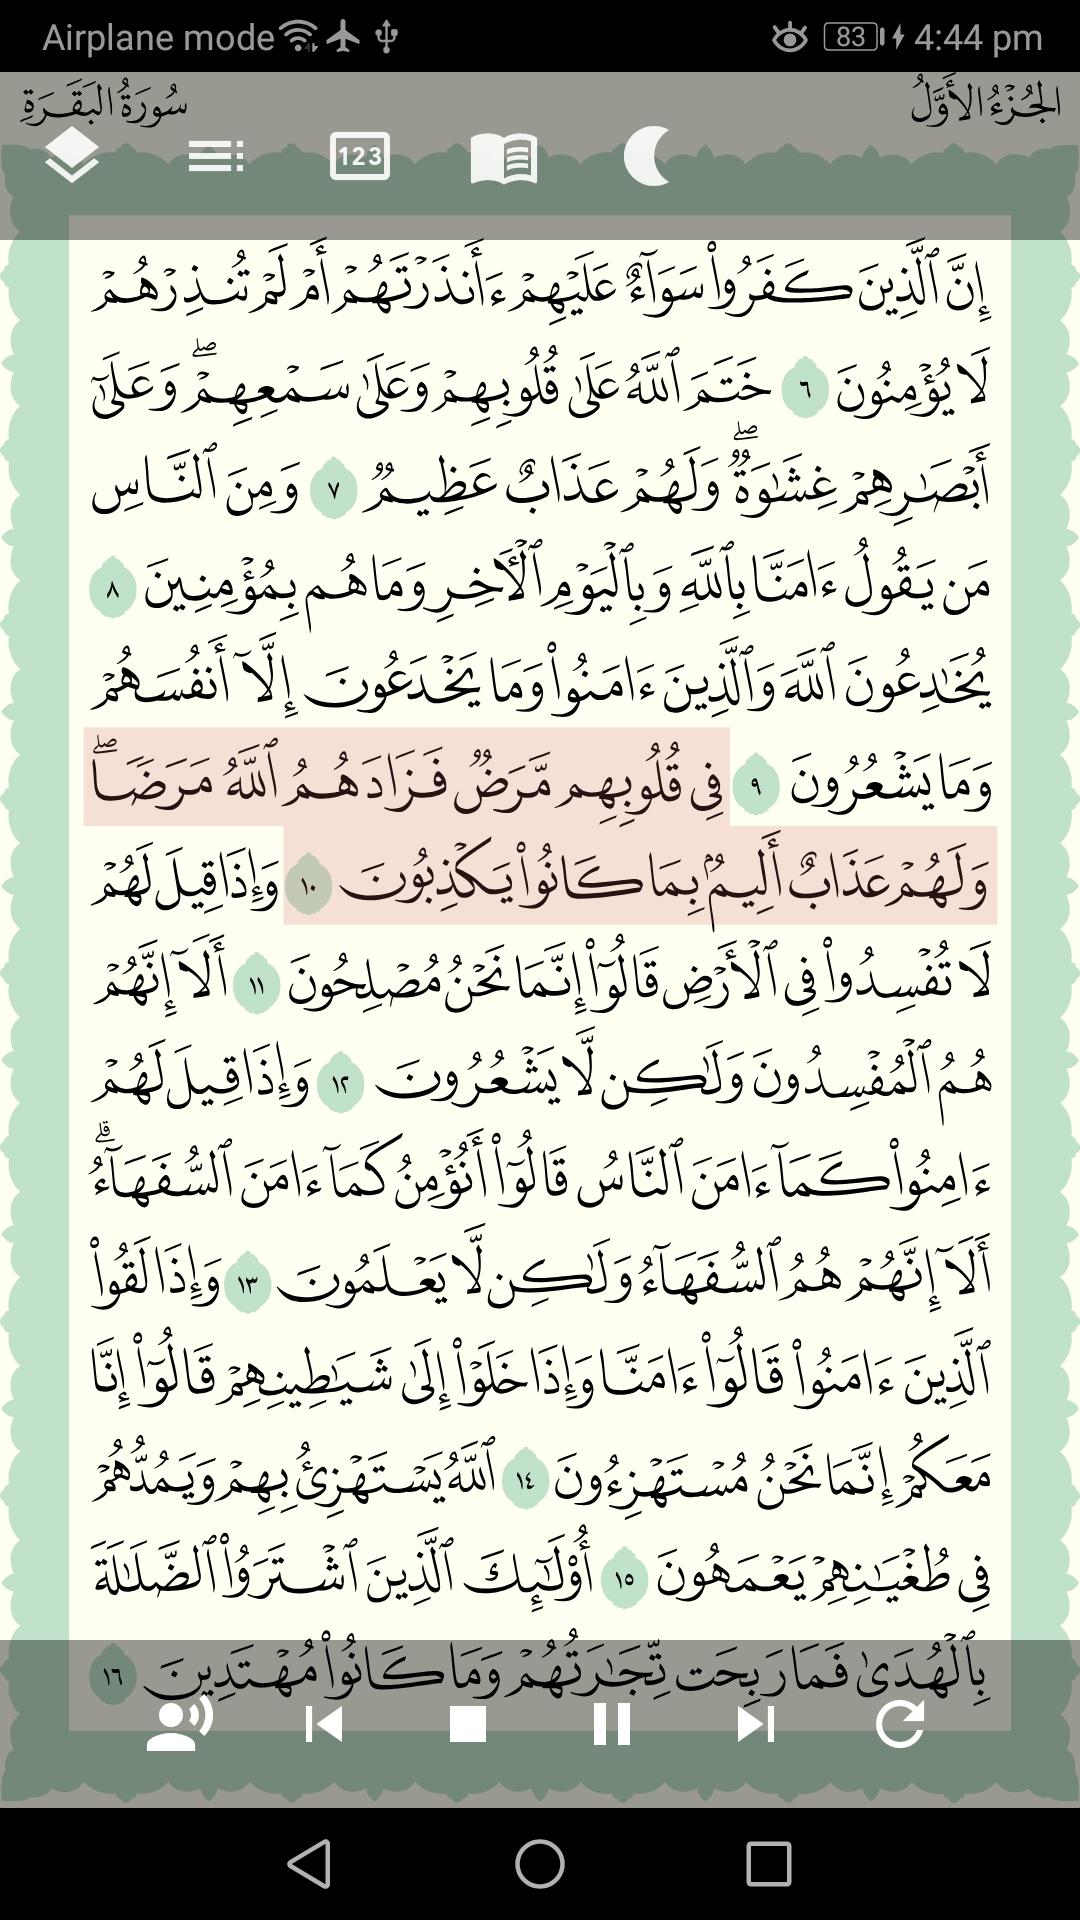 Airplane mode 83 4:44 pm
سُورَةُ البَقَرَةِ الجُزْءُ الأَوَّلُ
123
إِنَّ ٱلَّذِينَ كَفَرُوا۟ سَوَآءٌ عَلَيْهِمْ ءَأَنذَرْتَهُمْ أَمْ لَمْ تُنذِرْهُمْ
لَا يُؤْمِنُونَ ٦ خَتَمَ ٱللَّهُ عَلَىٰ قُلُوبِهِمْ وَعَلَىٰ سَمْعِهِمْ ۖ وَعَلَىٰٓ
أَبْصَٰرِهِمْ غِشَٰوَةٌ ۖ وَلَهُمْ عَذَابٌ عَظِيمٌ ٧ وَمِنَ ٱلنَّاسِ
مَن يَقُولُ ءَامَنَّا بِٱللَّهِ وَبِٱلْيَوْمِ ٱلْـَٔاخِرِ وَمَا هُم بِمُؤْمِنِينَ ٨
يُخَٰدِعُونَ ٱللَّهَ وَٱلَّذِينَ ءَامَنُوا۟ وَمَا يَخْدَعُونَ إِلَّآ أَنفُسَهُمْ
وَمَا يَشْعُرُونَ ٩ فِى قُلُوبِهِم مَّرَضٌ فَزَادَهُمُ ٱللَّهُ مَرَضًا ۖ
وَلَهُمْ عَذَابٌ أَلِيمٌۢ بِمَا كَانُوا۟ يَكْذِبُونَ ١٠ وَإِذَا قِيلَ لَهُمْ
لَا تُفْسِدُوا۟ فِى ٱلْأَرْضِ قَالُوٓا۟ إِنَّمَا نَحْنُ مُصْلِحُونَ ١١ أَلَآ إِنَّهُمْ
هُمُ ٱلْمُفْسِدُونَ وَلَٰكِن لَّا يَشْعُرُونَ ١٢ وَإِذَا قِيلَ لَهُمْ
ءَامِنُوا۟ كَمَآ ءَامَنَ ٱلنَّاسُ قَالُوٓا۟ أَنُؤْمِنُ كَمَآ ءَامَنَ ٱلسُّفَهَآءُ ۗ
أَلَآ إِنَّهُمْ هُمُ ٱلسُّفَهَآءُ وَلَٰكِن لَّا يَعْلَمُونَ ١٣ وَإِذَا لَقُوا۟
ٱلَّذِينَ ءَامَنُوا۟ قَالُوٓا۟ ءَامَنَّا وَإِذَا خَلَوْا۟ إِلَىٰ شَيَٰطِينِهِمْ قَالُوٓا۟ إِنَّا
مَعَكُمْ إِنَّمَا نَحْنُ مُسْتَهْزِءُونَ ١٤ ٱللَّهُ يَسْتَهْزِئُ بِهِمْ وَيَمُدُّهُمْ
فِى طُغْيَٰنِهِمْ يَعْمَهُونَ ١٥ أُو۟لَٰٓئِكَ ٱلَّذِينَ ٱشْتَرَوُا۟ ٱلضَّلَٰلَةَ
بِٱلْهُدَىٰ فَمَا رَبِحَت تِّجَٰرَتُهُمْ وَمَا كَانُوا۟ مُهْتَدِينَ ١٦